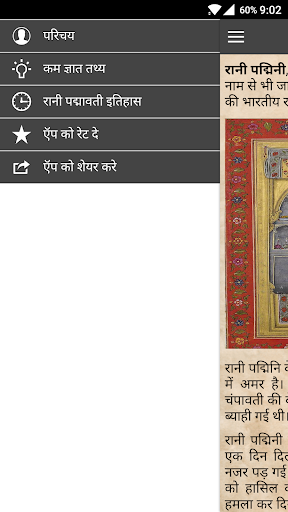 60% 9:02
परिचय
कम ज्ञात तथ्य
रानी पद्मावती इतिहास
ऍप को रेट दे
ऍप को शेयर करे
रानी पद्मिनी,
नाम से भी जा
की भारतीय र
रानी पद्मिनि के
में अमर है।
चंपावती की
ब्याही गई थी।
रानी पद्मिनी
एक दिन दिल
नजर पड़ गई
को हासिल क
हमला कर दि